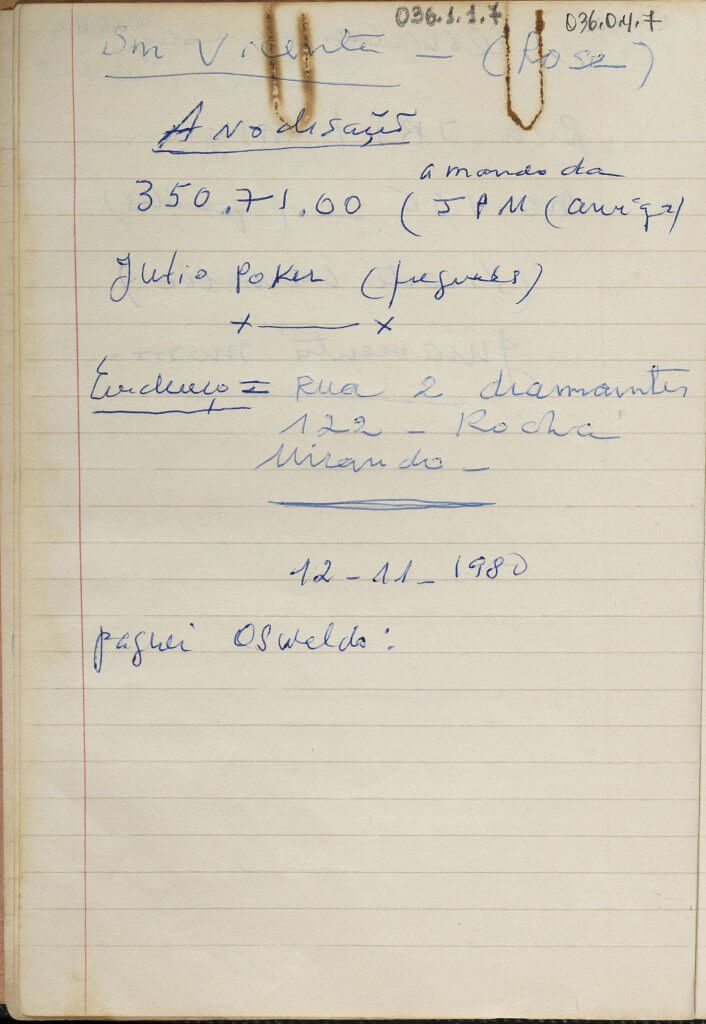 036.1.1.7
036.04.7
Snr Vicente - (Rose)
Anodisação
350.71.00 (JPM (amiga)
a mando da
Julio Poker (freguês)
x ——— x
Endereço = Rua 2 diamantes
122 - Rocha
Mirando -
12-11-1980
paguei Osweldo: